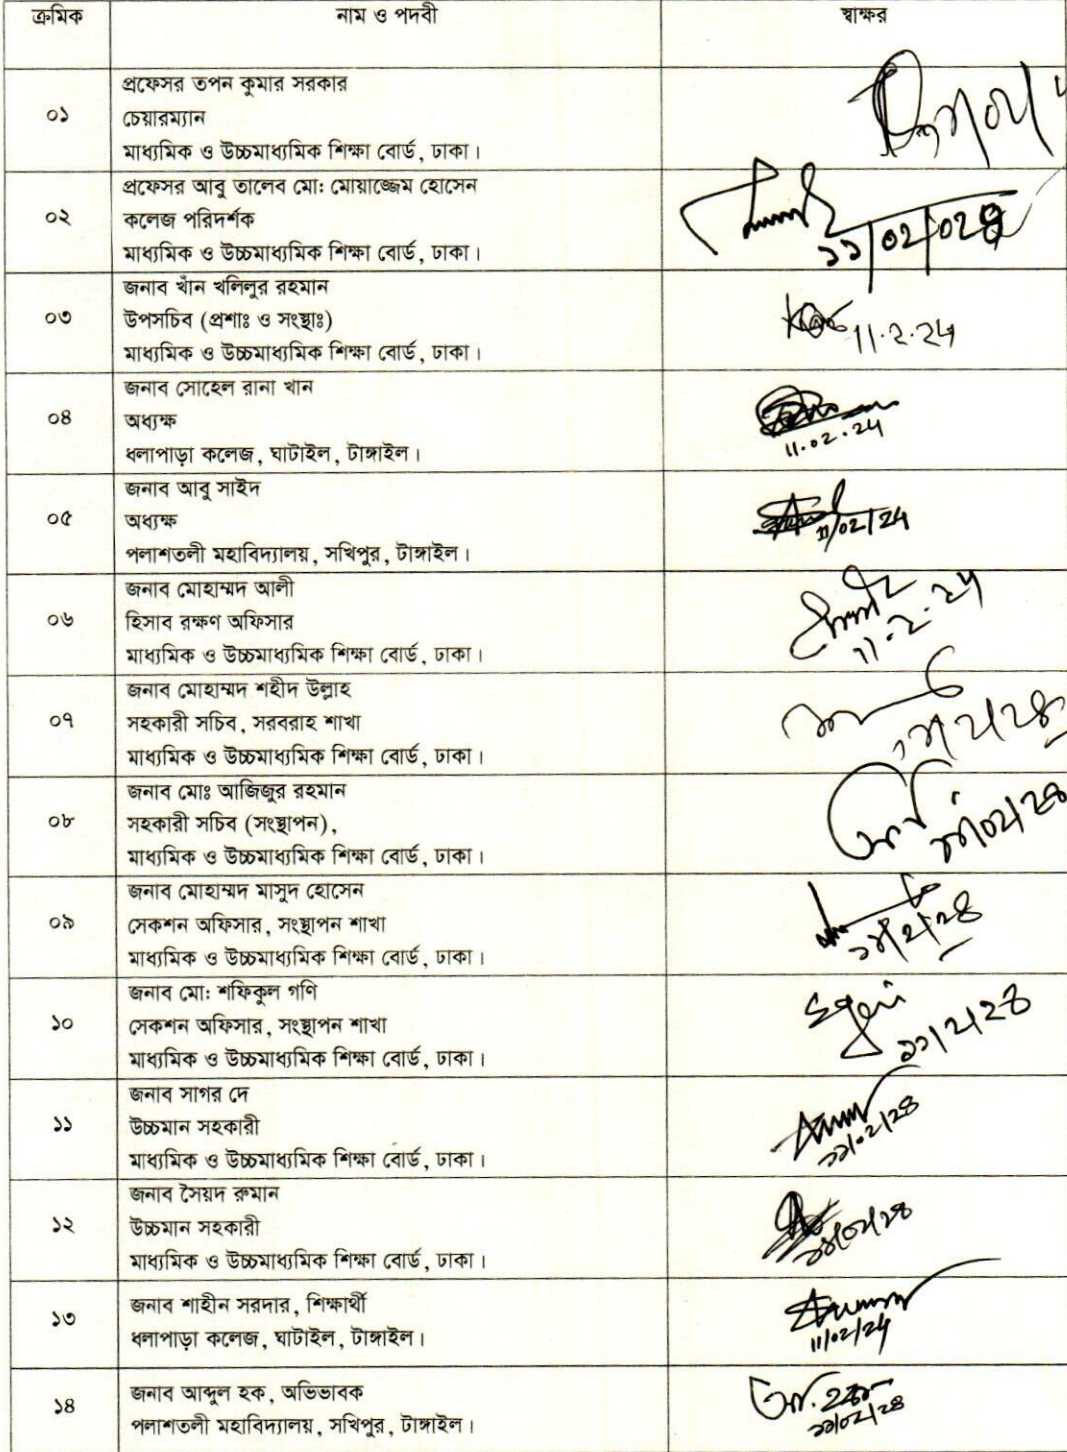 ক্রমিক নাম ও পদবী স্বাক্ষর
প্রফেসর তপন কুমার সরকার
০১ চেয়ারম্যান
মাধ্যমিক ও উচ্চমাধ্যমিক শিক্ষা বোর্ড, ঢাকা।
প্রফেসর আবু তালেব মো: মোয়াজ্জেম হোসেন
০২ কলেজ পরিদর্শক
মাধ্যমিক ও উচ্চমাধ্যমিক শিক্ষা বোর্ড, ঢাকা। ১১/০২/০২৪
জনাব খাঁন খলিলুর রহমান
০৩ উপসচিব (প্রশাঃ ও সংস্থাঃ)
মাধ্যমিক ও উচ্চমাধ্যমিক শিক্ষা বোর্ড, ঢাকা। 11.2.24
জনাব সোহেল রানা খান
০৪ অধ্যক্ষ
ধলাপাড়া কলেজ, ঘাটাইল, টাঙ্গাইল। 11.02.24
জনাব আবু সাইদ
০৫ অধ্যক্ষ 11/02/24
পলাশতলী মহাবিদ্যালয়, সখিপুর, টাঙ্গাইল।
জনাব মোহাম্মদ আলী
০৬ হিসাব রক্ষণ অফিসার 11.2.24
মাধ্যমিক ও উচ্চমাধ্যমিক শিক্ষা বোর্ড, ঢাকা।
জনাব মোহাম্মদ শহীদ উল্লাহ
০৭ সহকারী সচিব, সরবরাহ শাখা
মাধ্যমিক ও উচ্চমাধ্যমিক শিক্ষা বোর্ড, ঢাকা। ১১/২/২৪
জনাব মোঃ আজিজুর রহমান
০৮ সহকারী সচিব (সংস্থাপন), ১১/০২/২৪
মাধ্যমিক ও উচ্চমাধ্যমিক শিক্ষা বোর্ড, ঢাকা।
জনাব মোহাম্মদ মাসুদ হোসেন
০৯ সেকশন অফিসার, সংস্থাপন শাখা ১১/২/২৪
মাধ্যমিক ও উচ্চমাধ্যমিক শিক্ষা বোর্ড, ঢাকা।
জনাব মো: শফিকুল গণি
১০ সেকশন অফিসার, সংস্থাপন শাখা ১১/২/২৪
মাধ্যমিক ও উচ্চমাধ্যমিক শিক্ষা বোর্ড, ঢাকা।
জনাব সাগর দে
১১ উচ্চমান সহকারী ১১/০২/২৪
মাধ্যমিক ও উচ্চমাধ্যমিক শিক্ষা বোর্ড, ঢাকা।
জনাব সৈয়দ রুমান
১২ উচ্চমান সহকারী ১১/০২/২৪
মাধ্যমিক ও উচ্চমাধ্যমিক শিক্ষা বোর্ড, ঢাকা।
১৩ জনাব শাহীন সরদার, শিক্ষার্থী
ধলাপাড়া কলেজ, ঘাটাইল, টাঙ্গাইল। 11/02/24
১৪ জনাব আব্দুল হক, অভিভাবক
পলাশতলী মহাবিদ্যালয়, সখিপুর, টাঙ্গাইল। ১১/০২/২৪